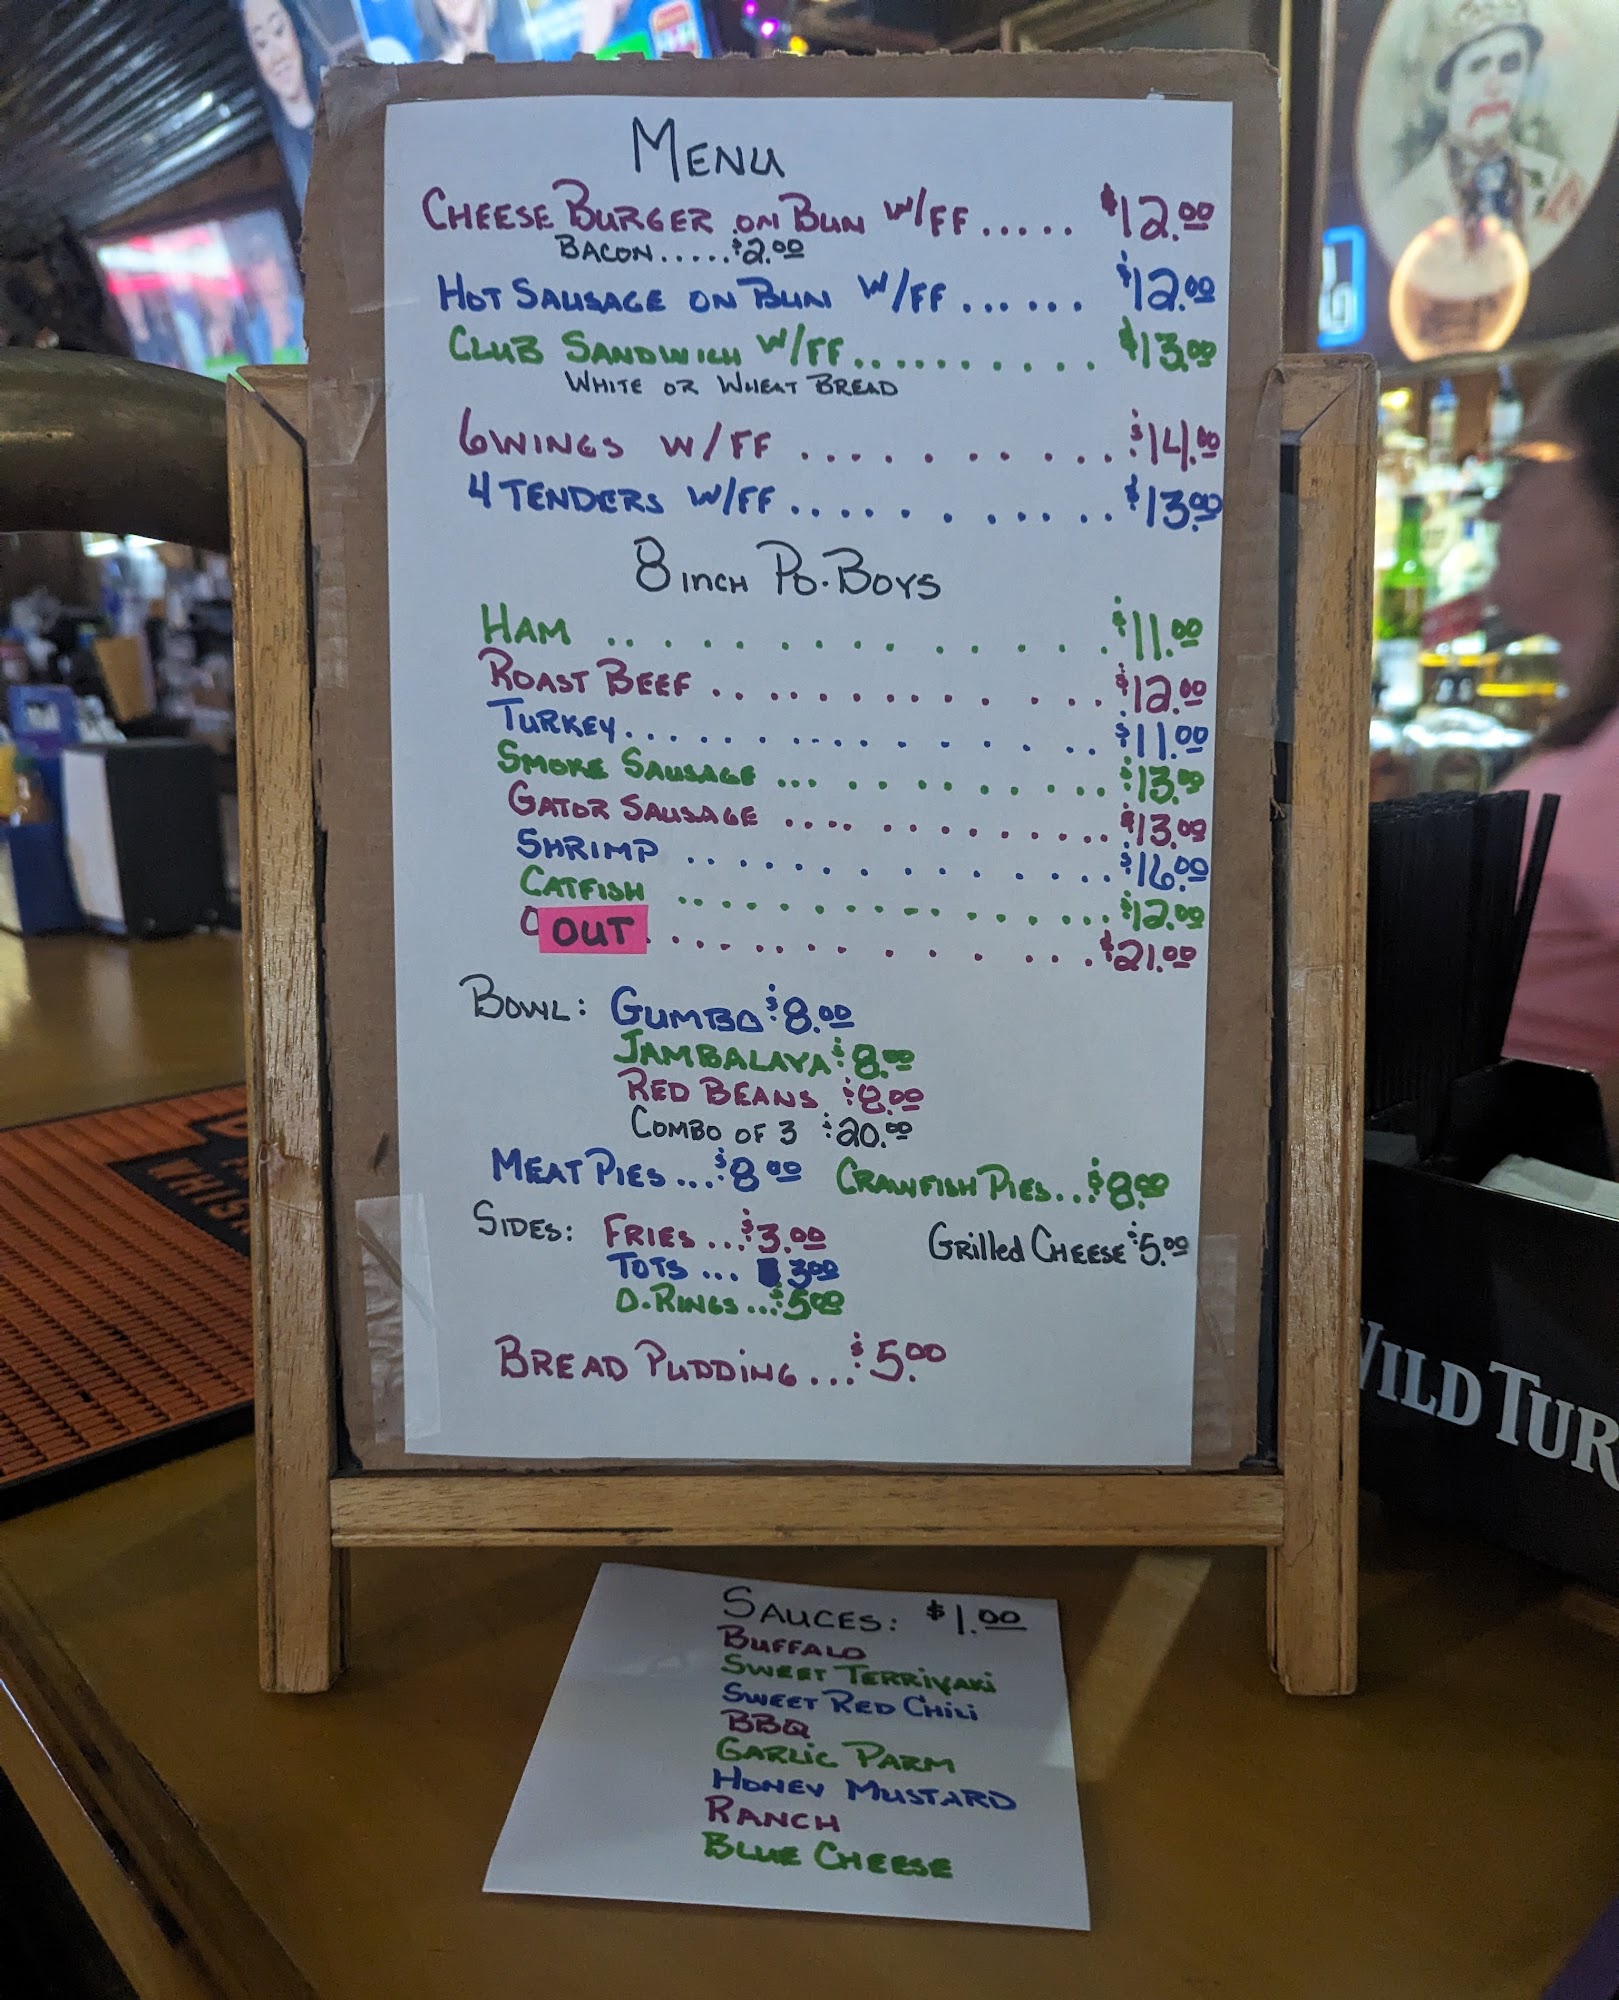 MENU
CHEESE BURGER ON BUN W/FF ..... $12.00
BACON.....$2.00
HOT SAUSAGE ON BUN W/FF ...... $12.00
CLUB SANDWICH W/FF.......... $13.00
WHITE OR WHEAT BREAD
6 WINGS W/FF ........... $14.00
4 TENDERS W/FF........... $13.00
8 INCH PO.BOYS
HAM ............. $11.00
ROAST BEEF ............. $12.00
TURKEY.............. $11.00
SMOKE SAUSAGE ............ $13.00
GATOR SAUSAGE ............. $13.00
SHRIMP ............. $16.00
CATFISH .............. $12.00
OUT ............. $21.00
BOWL: GUMBO $8.00
JAMBALAYA $8.00
RED BEANS $8.00
COMBO OF 3 $20.00
MEAT PIES...$8.00 CRAWFISH PIES...$8.00
SIDES: FRIES...$3.00 GRILLED CHEESE $5.00
TOTS ... 3.00
O.RINGS...$5.00
BREAD PUDDING...$5.00
SAUCES: $1.00
BUFFALO
SWEET TERRIYAKI
SWEET RED CHILI
BBQ
GARLIC PARM
HONEY MUSTARD
RANCH
BLUE CHEESE
WILD TUR
WHIS